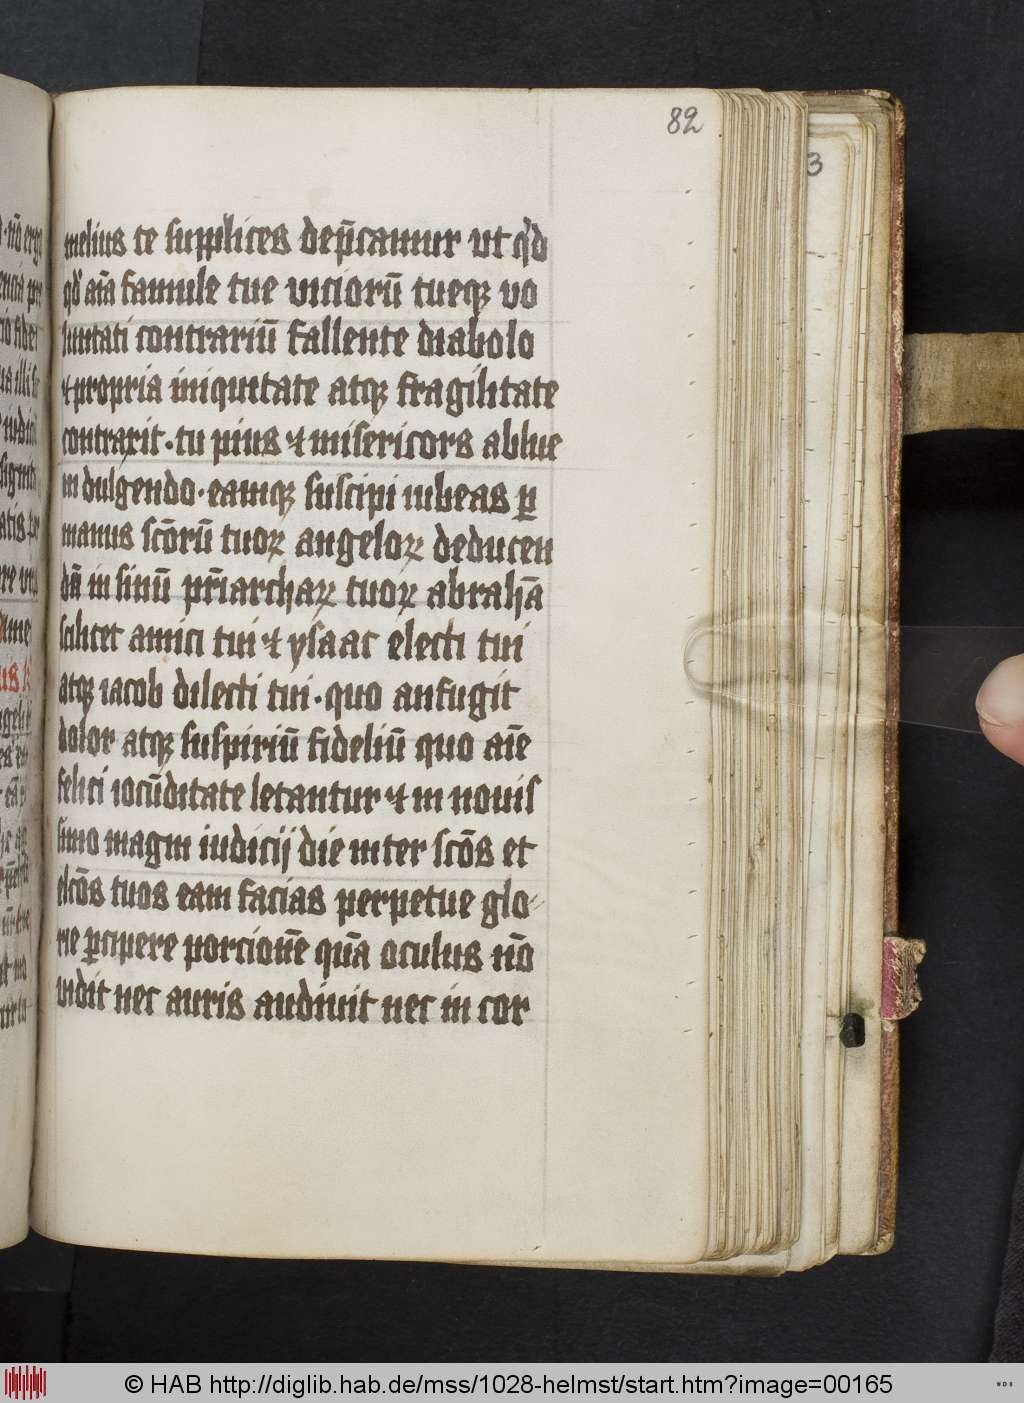 82
3
melius te supplices dep̄camur vt q̇d
qd̓ aīa famule tue vicioru̅ tueqꝫ vo
luntati contrariu̅ fallente diabolo
⁊ propria iniquitate atqꝫ fragilitate
contraxit · tu pius ⁊ misericors ablue
in dulgendo · eamqꝫ suscipi iubeas ꝑ
manus sc̄oru̅ tuoꝝ angeloꝝ deducen
da̅ in sinu̅ pr̄iarchaꝝ tuoꝝ abraha̅
scilicet amici tui ⁊ ysaac electi tui
atqꝫ iacob dilecti tui · quo aufugit
dolor atqꝫ suspiriu̅ fideliu̅ quo aīe
felici iocu̅ditate letantur ⁊ in nouis
simo magni iudicij die inter sc̄os et
elc̄os tuos eam facias perpetue glo⸗
rie ꝑcipere porcione̅ qua̅ oculus no̅
vidit nec auris audiuit nec in cor
© HAB http://diglib.hab.de/mss/1028-helmst/start.htm?image=00165